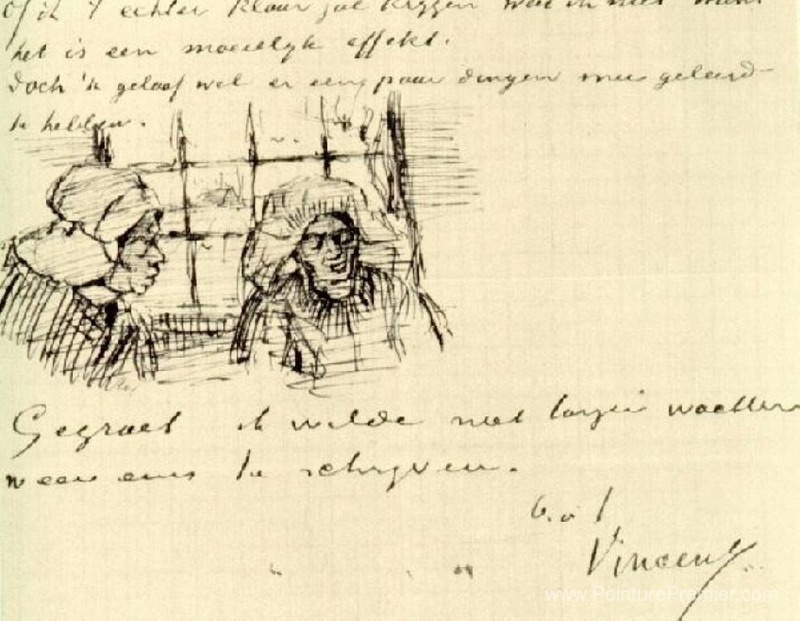 of ik 't echter klaar zal krijgen weet ik niet want
het is een moeielijk effekt.
Doch 'k geloof wel er een paar dingen mee geleerd
te hebben.
Gegroet ik wilde niet langer wachten
weer eens te schrijven.
b.à.t.
Vincent
www.PeinturePremier.com